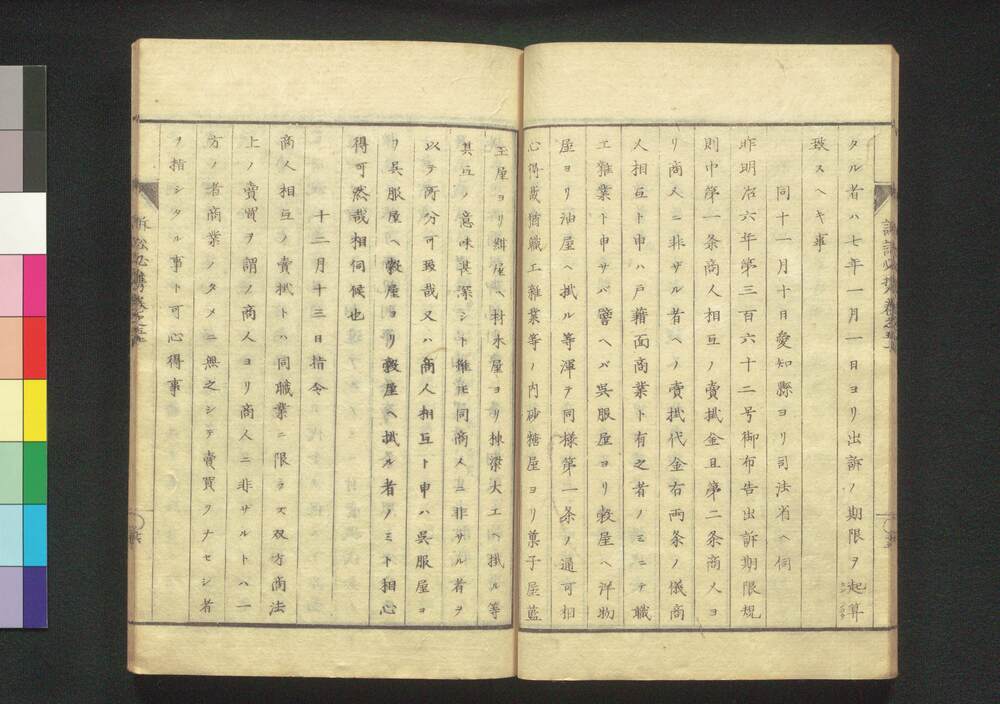 タル者ハ七年一月一日ヨリ出訴ノ期限ヲ起算
致スヘキ事
同十一月十日愛知縣ヨリ司法省ヘ伺
昨明治六年第三百六十二号御布告出訴期限規
則中第一条商人相互ノ賣掛金且第二条商人ヨ
リ商人ニ非ザル者ヘノ賣掛代金右両条ノ儀商
人相互ト申ハ戸籍面商業ト有之者ノミニテ職
工雜業ト申サバ譬ヘバ呉服屋ヨリ穀屋ヘ洋物
屋ヨリ油屋ヘ掛ル等渾テ同様第一条ノ通可相
心得哉猶職工雜業等ノ内砂糖屋ヨリ菓子屋藍
玉屋ヨリ紺屋ヘ材木屋ヨリ棟梁大工ヘ掛ル等
其互ノ意味甚深シト雖圧同商人ニ非サル者ヲ
以テ所分可致哉又ハ商人相互ト申ハ呉服屋ヨ
リ呉服屋ヘ穀屋ヨリ穀屋ヘ掛ル者ノミト相心
得可然哉相伺候也
十二月十三日指令
商人相互ノ賣掛トハ同職業ニ限ラス双方商法
上ノ賣買ヲ謂ノ商人ヨリ商人ニ非ザルトハ一
方ノ者商業ノタメニ無之シテ賣買ヲナセシ者
ヲ指シタル事ト可心得事
訴訟必携巻之五